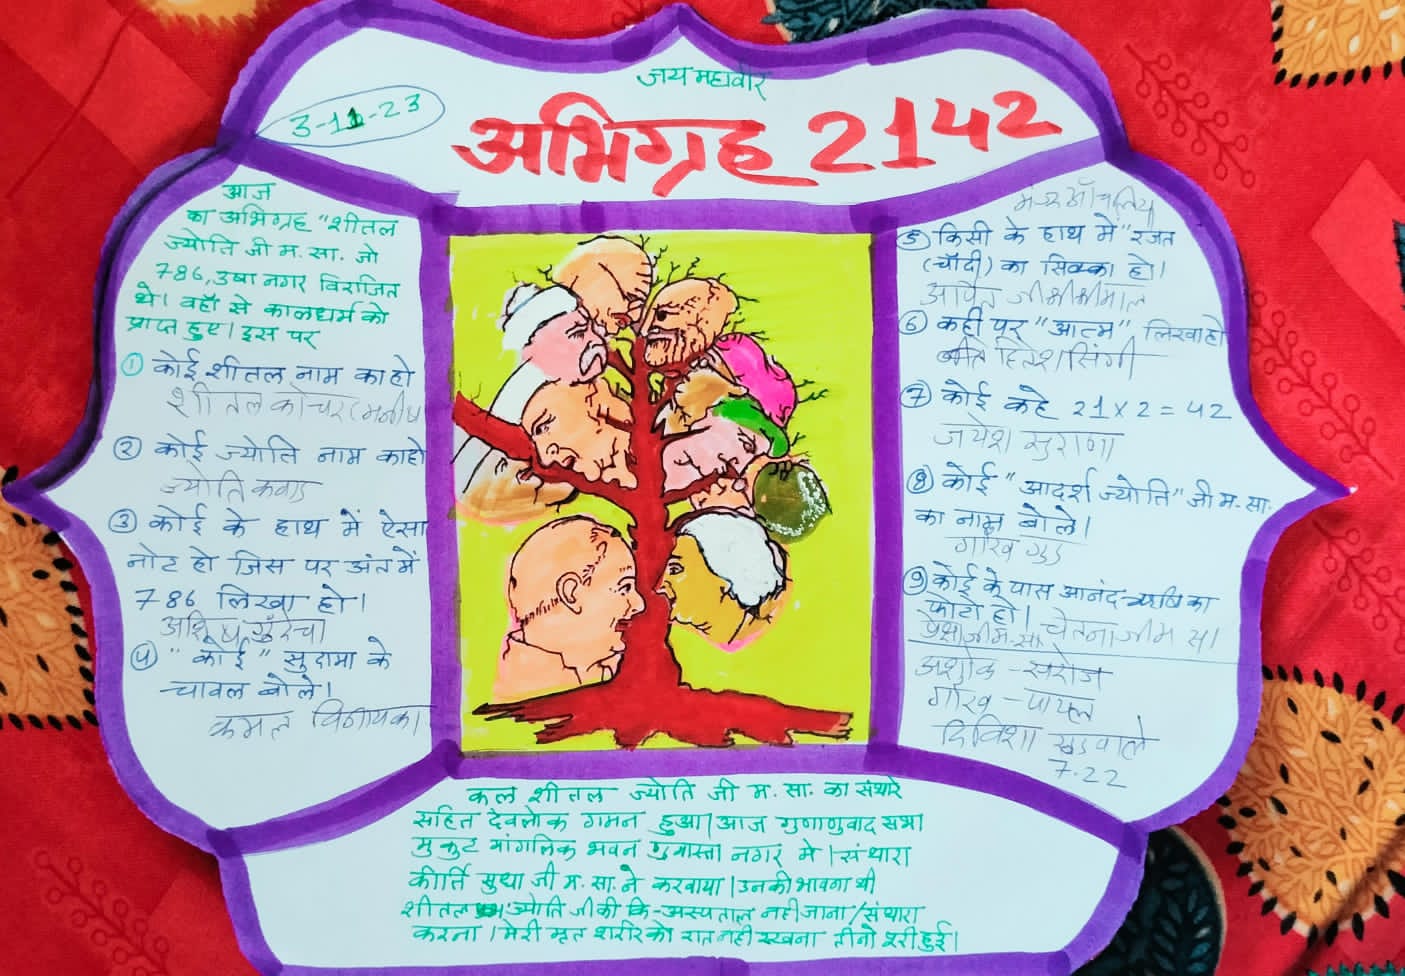 जय महावीर
3-11-23
अभिग्रह 2142
आज
का अभिग्रह "शीतल
ज्योति जी म. सा. जो
786, उषा नगर विराजित
थे। वहाँ से कालधर्म को
प्राप्त हुए। इस पर
① कोई शीतल नाम का हो
शीतल कोचर (मनीष
② कोई ज्योति नाम का हो
ज्योति कवाड
③ कोई के हाथ में ऐसा
नोट हो जिस पर अंत में
786 लिखा हो।
④ "कोई" सुदामा के
चावल बोले।
कमल विनायका
⑤ किसी के हाथ में "रजत
(चाँदी) का सिक्का हो।
अर्पित जी श्रीश्रीमाल
⑥ कहीं पर "आत्म" लिखा हो
हितेश सिंगी
⑦ कोई कहे 21 x 2 = 42
जयेश सुराणा
⑧ कोई "आदर्श ज्योति" जी म. सा.
का नाम बोले।
⑨ कोई के पास आनंद ऋषि का
फोटो हो। चेतना जी म सा
प्रेक्षा जी म. सा.
अशोक - सरोज
गौरव - पायल
दिविशा वाले
7.22
कल शीतल ज्योति जी म. सा. का संथारे
सहित देवलोक गमन हुआ। आज गुणाणुवाद सभा
मुकुट मांगलिक भवन गुमास्ता नगर मे। संथारा
कीर्ति सुधा जी म. सा. ने करवाया। उनकी भावना थी
शीतल ज्योति जी की कि - अस्पताल नही जाना / संथारा
करना। मेरी मृत शरीर को रात नही रखना तीनो पूरी हुई।